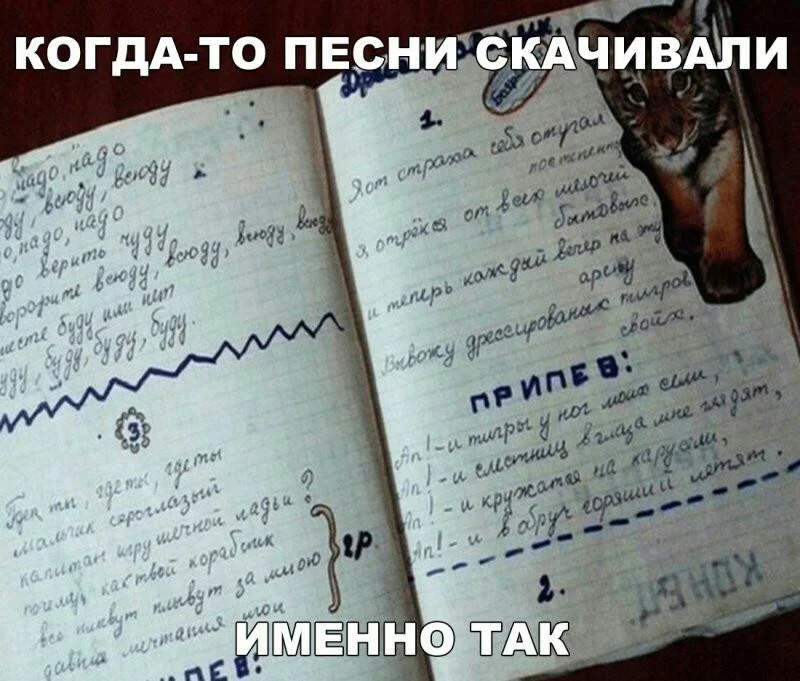 КОГДА-ТО ПЕСНИ СКАЧИВАЛИ
надо, надо
всюду, всюду
надо, надо
верить чуду
всюду, всюду, всюду, всюду
буду или нет
буду, буду, буду.
3
где ты, где ты
мальчик сероглазый
капитан игрушечной ладьи?
как твой кораблик
все плывут плывут за мною
давние мечтания мои
2р.
1.
Я от страха себя отучал
постепенно,
я отрёкся от всех мелочей
бытовых,
и теперь каждый вечер на эту
арену
Вывожу дрессированых тигров
своих.
ПРИПЕВ:
Ап!-и тигры у ног моих сели,
Ап!-и с лестниц в глаза мне глядят,
Ап!-и кружатся на карусели,
Ап!-и в обруч горящий летят.
2.
КОНЕЦ
ИМЕННО ТАК